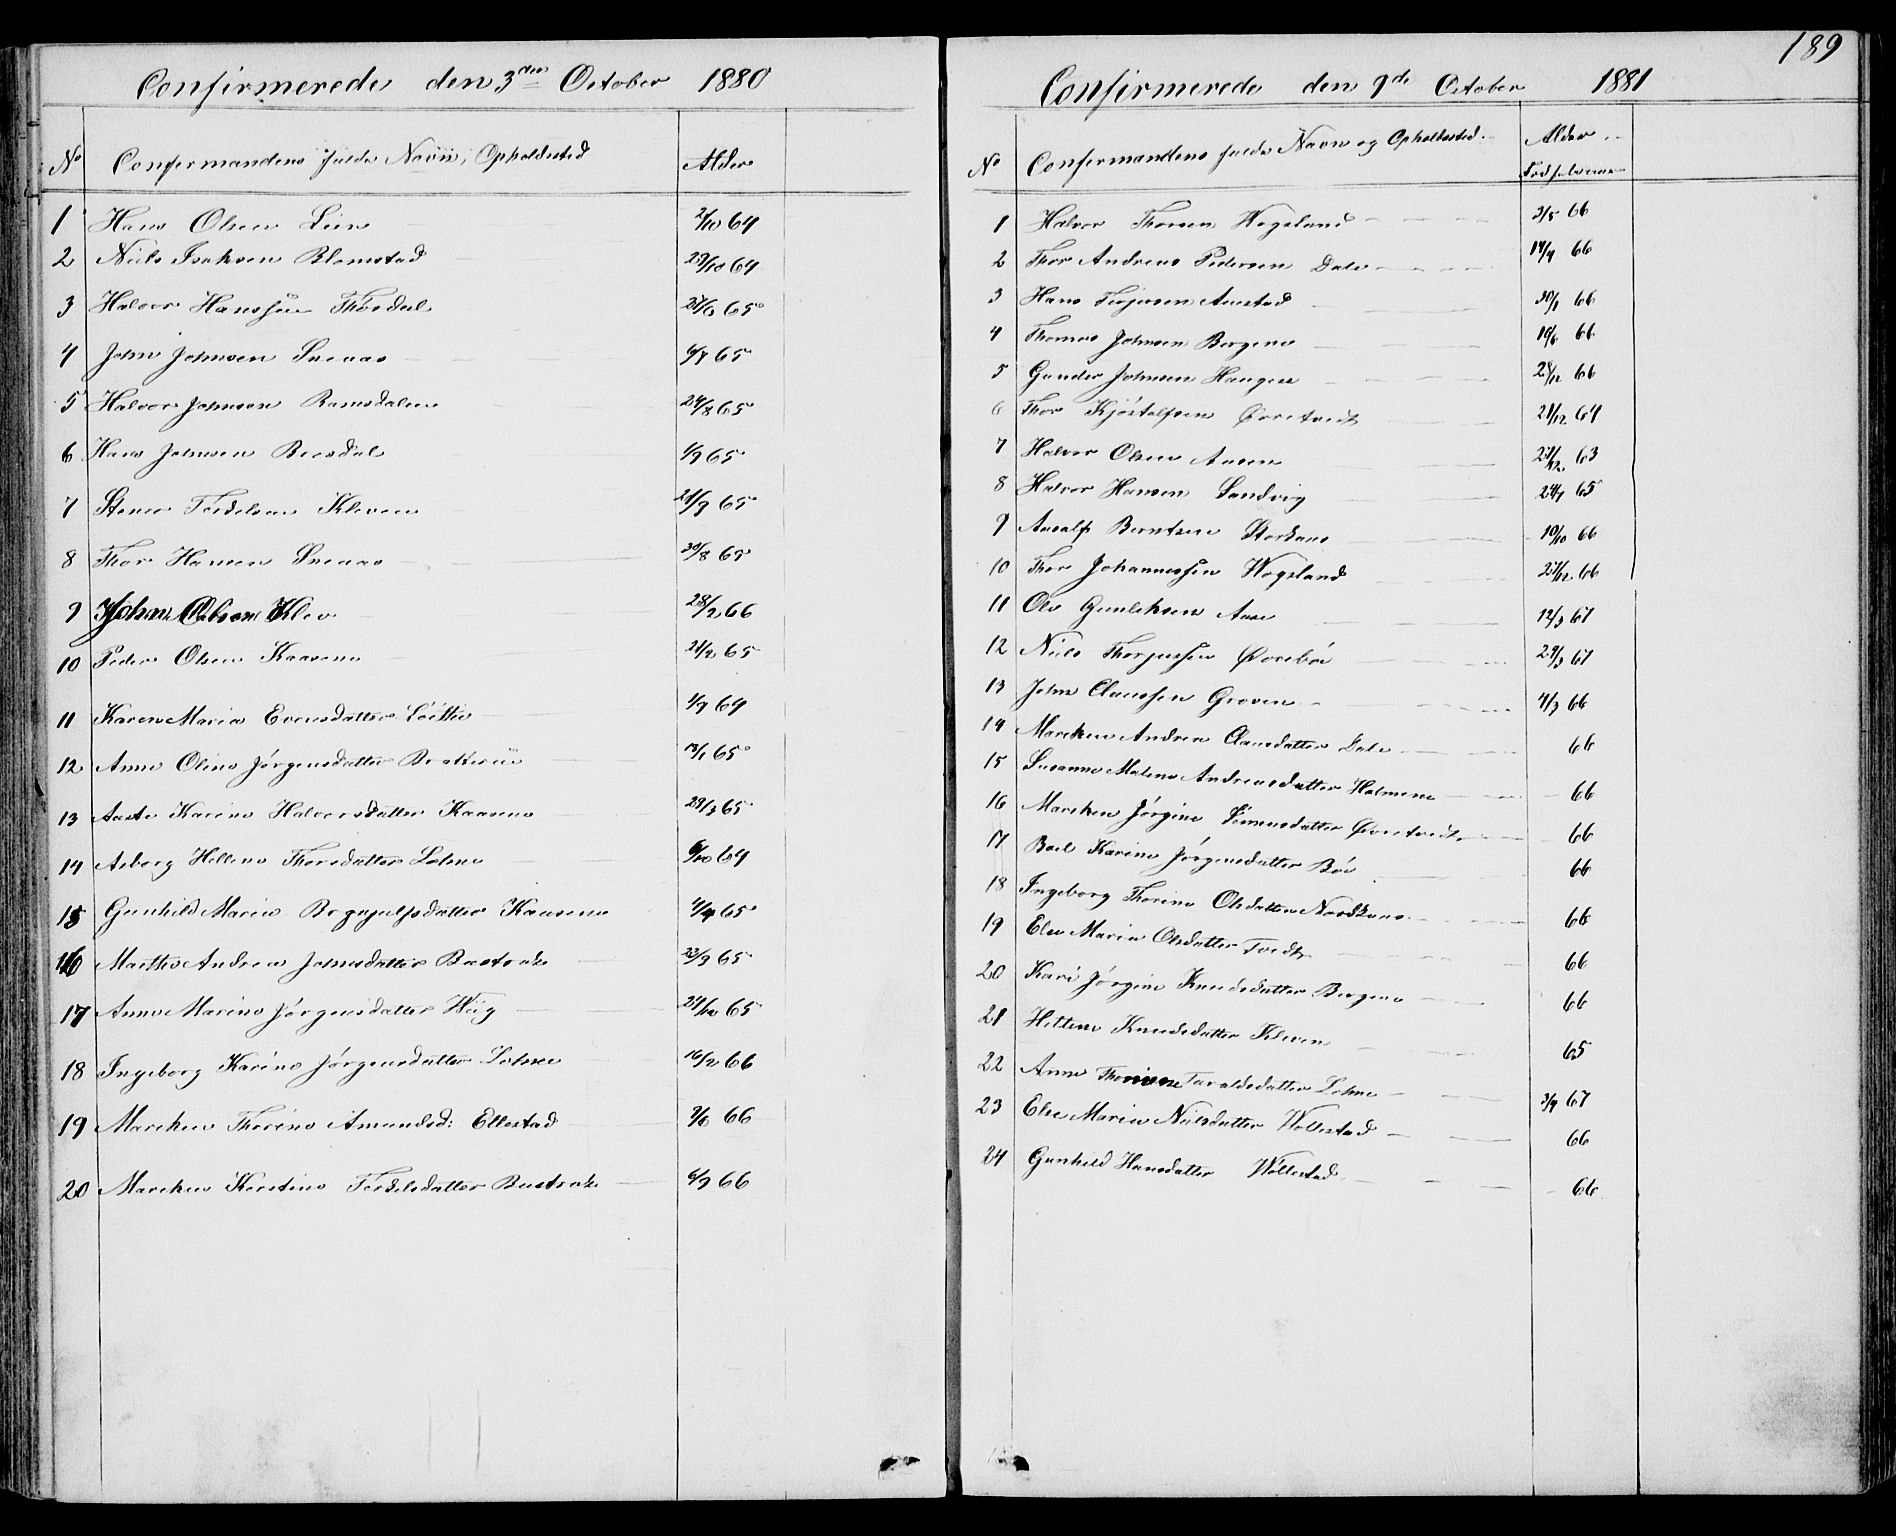 189
Confirmerede den 3den October 1880
No Confirmandens fulde Navn, Opholdsted Alder
1 Hans Olsen Lien 2/10 64
2 Niels Isaksen Blomstad 29/10 64
3 Halvor Hanssen Thorsdal 65
4 John Johnsen Sneaas 65
5 Halvor Johnsen Ramsdalen 24/8 65
6 Hans Johnsen Bersdal 1/9 65
7 Stener Terkelsen Kleven 21/9 65
8 Thor Hansen Sneaas 30/8 65
9 Johan Olsen Klev 28/2 66
10 Peder Olsen Kaasene 65
11 Karen Maria Evensdatter 69
12 Anne Oline Jørgensdatter 13/1 65
13 Aaste Karine Halvorsdatter Kaasene 29/3 65
14 Asborg Helene Thorsdatter Lohne 6/10 64
15 Gunhild Maria Brynjulfsdatter Kaasene 65
16 Marthe Andrea Johnsdatter Bustrak 23/3 65
17 Anne Marine Jørgensdatter Wiig 65
18 Ingeborg Karine Jørgensdatter Lohne 16/2 66
19 Maren Thorine Amundsd: Ellestad 66
20 Maren Kirstine Terkelsdatter Bustrak 6/9 66
Confirmerede den 9de October 1881
No Confirmandens fulde Navn og Opholdssted. Alder
1 Halvor Thorsen Wogsland 3/5 66
2 Thor Andreas Pedersen Dale 66
3 Hans Terjesen Aanstad 66
4 Thomas Johnsen Bergene 66
5 Gunder Johnsen Haugen 66
6 Thor
7 Halvor Olsen Aasen 63
8 Halvor Hansen Sandvig 65
9 Berntsen 10/10 66
10 Thor Johannessen Wogsland 66
11 Ole Gunleksen Aase 12/3 67
12 Niels Thorjussen Øvrebø 67
13 John Claussen Groven 66
14 Maren Andrea Clausdatter Dale 66
15 Susanne Malene Andreasdatter Holmene 66
16 Maren Jørgine 66
17 Boel Karine Jørgensdatter Bøe 66
18 Ingeborg Thorine Olsdatter 66
19 Else Maria Olsdatter Tvedt 66
20 Kari Jørgine Knudsdatter Bergene 66
21 Knudsdatter Kleven 65
22 Anne Thorine Taraldsdatter Lohne 67
23 Else Maria Nielsdatter Wollestad 66
24 Gunhild Hansdatter Wollestad 66